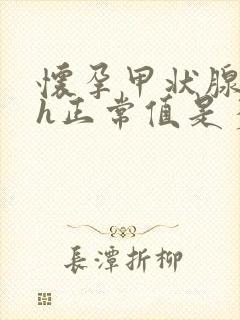 懷孕甲狀腺
h正常值是
長潭折柳